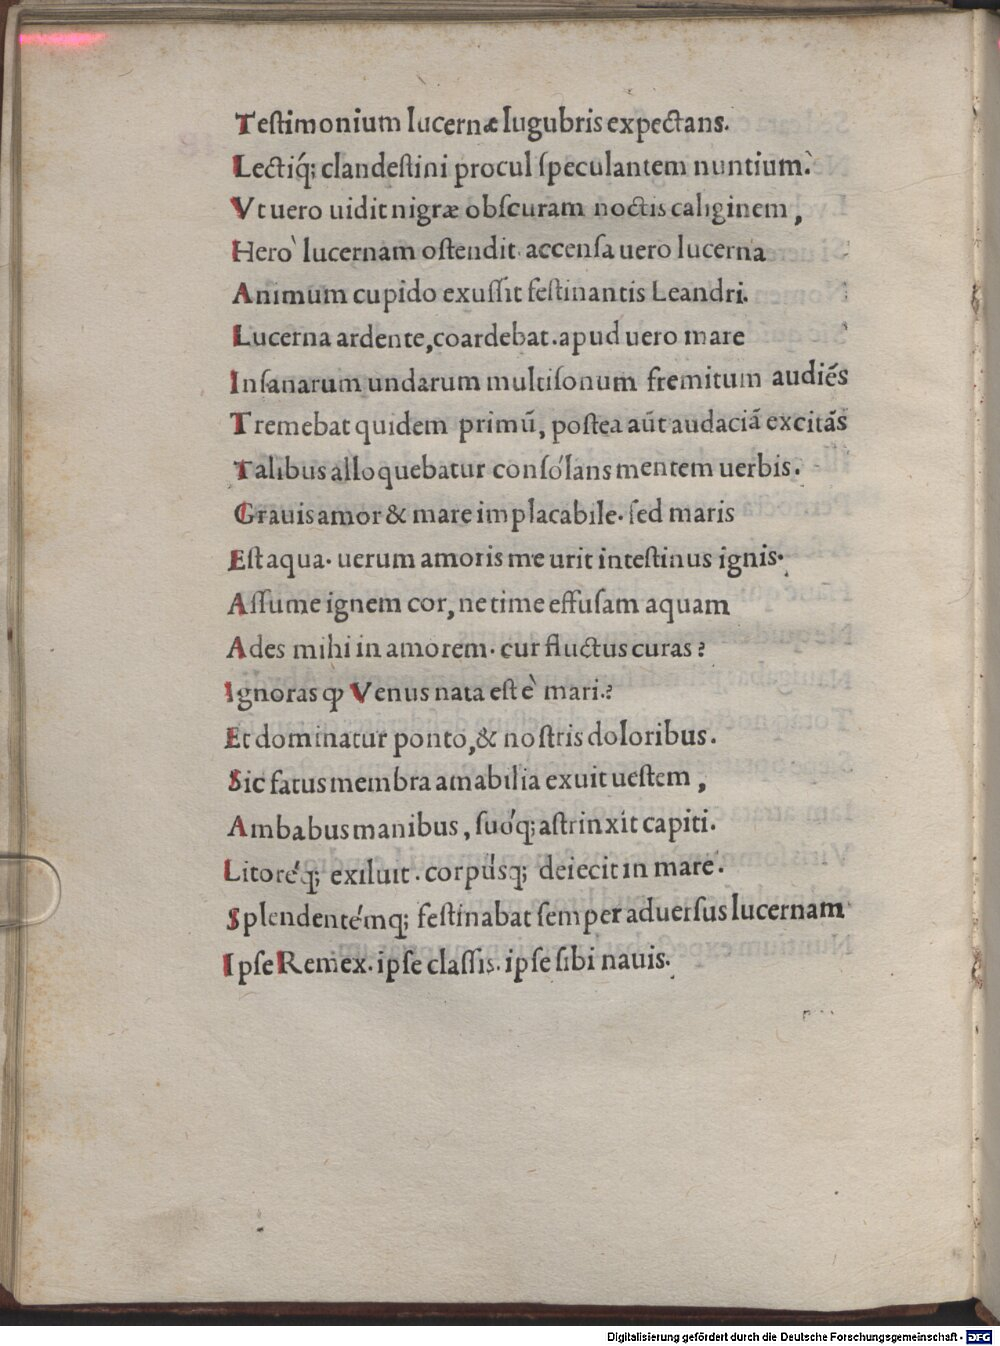 Teſtimonium lucernæ lugubris expectans.
Lectiq́; clandeſtini procul ſpeculantem nuntium.
Vt uero uidit nigræ obſcuram noctis caliginem,
Hero lucernam oſtendit. accenſa uero lucerna
Animum cupido exuſſit feſtinantis Leandri.
Lucerna ardente, coardebat. apud uero mare
Inſanarum undarum multiſonum fremitum audiẽs
Tremebat quidem primũ, poſtea aũt audaciã excitãs
Talibus alloquebatur conſólans mentem uerbis.
Grauis amor & mare implacabile. ſed maris
Eſt aqua. uerum amoris me urit inteſtinus ignis.
Aſſume ignem cor, ne time effuſam aquam
Ades mihi in amorem. cur fluctus curas?
Ignoras ꝙ Venus nata eſt è mari.?
Et dominatur ponto, & noſtris doloribus.
Sic fatus membra amabilia exuit ueſtem,
Ambabus manibus, ſuóq; aſtrinxit capiti.
Litoréq; exiluit. corpúsq; deiecit in mare.
Splendentémq; feſtinabat ſemper aduerſus lucernam
Ipſe Remex. ipſe claſſis. ipſe ſibi nauis.
Digitalisierung gefördert durch die Deutsche Forschungsgemeinschaft - DFG